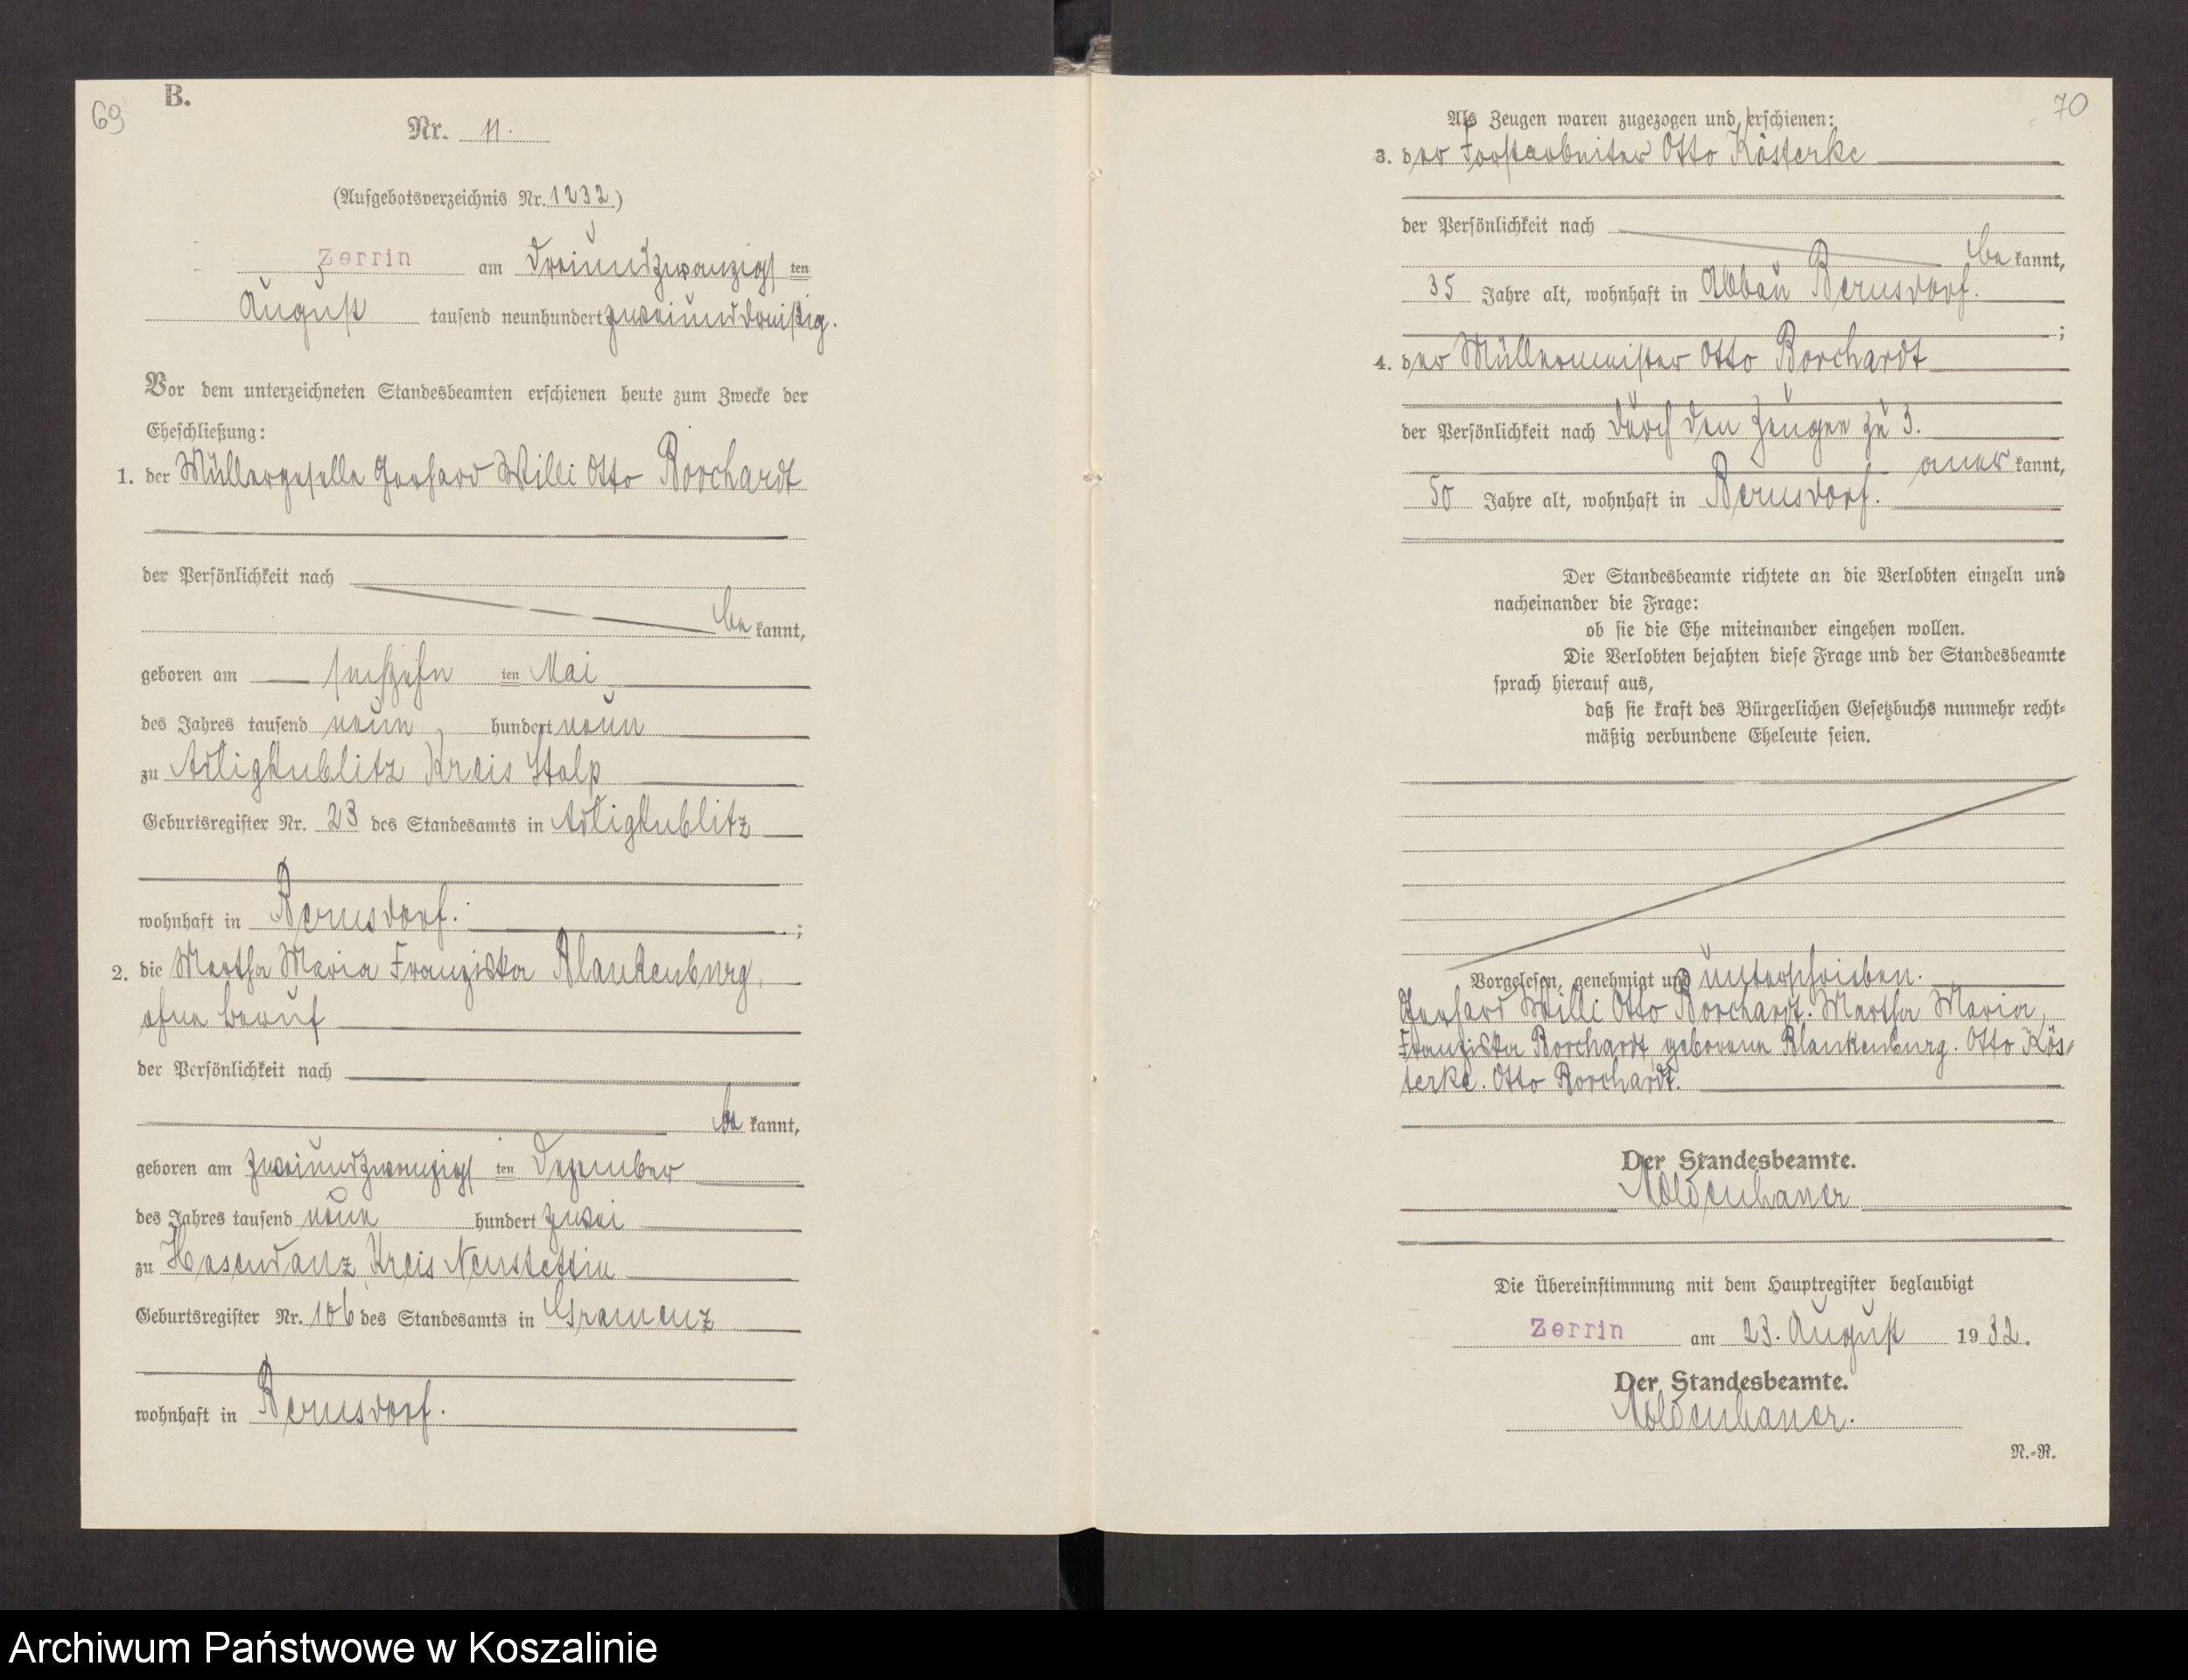 69
B.
Nr. 11.
(Aufgebotsverzeichnis Nr. 1232)
Zerrin am dreiundzwanzigsten
August tausend neunhundert zweiunddreißig.
Vor dem unterzeichneten Standesbeamten erschienen heute zum Zwecke der
Eheschließung:
1. der Müllergeselle Gerhard Willi Otto Borchardt
der Persönlichkeit nach
bekannt,
geboren am sechzehnten Mai
des Jahres tausend neun hundert neun
zu Adligkublitz Kreis Stolp
Geburtsregister Nr. 23 des Standesamts in Adligkublitz
wohnhaft in Bernsdorf. ;
2. die Martha Maria Franziska Blankenburg,
ohne Beruf
der Persönlichkeit nach
bekannt,
geboren am zweiundzwanzigsten Dezember
des Jahres tausend neun hundert zwei
zu Hasendanz Kreis Neustettin
Geburtsregister Nr. 106 des Standesamts in Gramenz
wohnhaft in Bernsdorf.
70
Als Zeugen waren zugezogen und erschienen:
3. der Forstarbeiter Otto Kösterke
der Persönlichkeit nach
bekannt,
35 Jahre alt, wohnhaft in Abbau Bernsdorf.
;
4. der Müllermeister Otto Borchardt
der Persönlichkeit nach durch den Zeugen zu 3.
anerkannt,
50 Jahre alt, wohnhaft in Bernsdorf.
Der Standesbeamte richtete an die Verlobten einzeln und
nacheinander die Frage:
ob sie die Ehe miteinander eingehen wollen.
Die Verlobten bejahten diese Frage und der Standesbeamte
sprach hierauf aus,
daß sie kraft des Bürgerlichen Gesetzbuchs nunmehr recht-
mäßig verbundene Eheleute seien.
Vorgelesen, genehmigt und unterschrieben.
Gerhard Willi Otto Borchardt. Martha Maria
Franziska Borchardt geborene Blankenburg. Otto Kös-
terke. Otto Borchardt.
Der Standesbeamte.
Moldenhauer
Die Übereinstimmung mit dem Hauptregister beglaubigt
Zerrin am 23. August 1932.
Der Standesbeamte.
Moldenhauer.
N.-R.
Archiwum Państwowe w Koszalinie